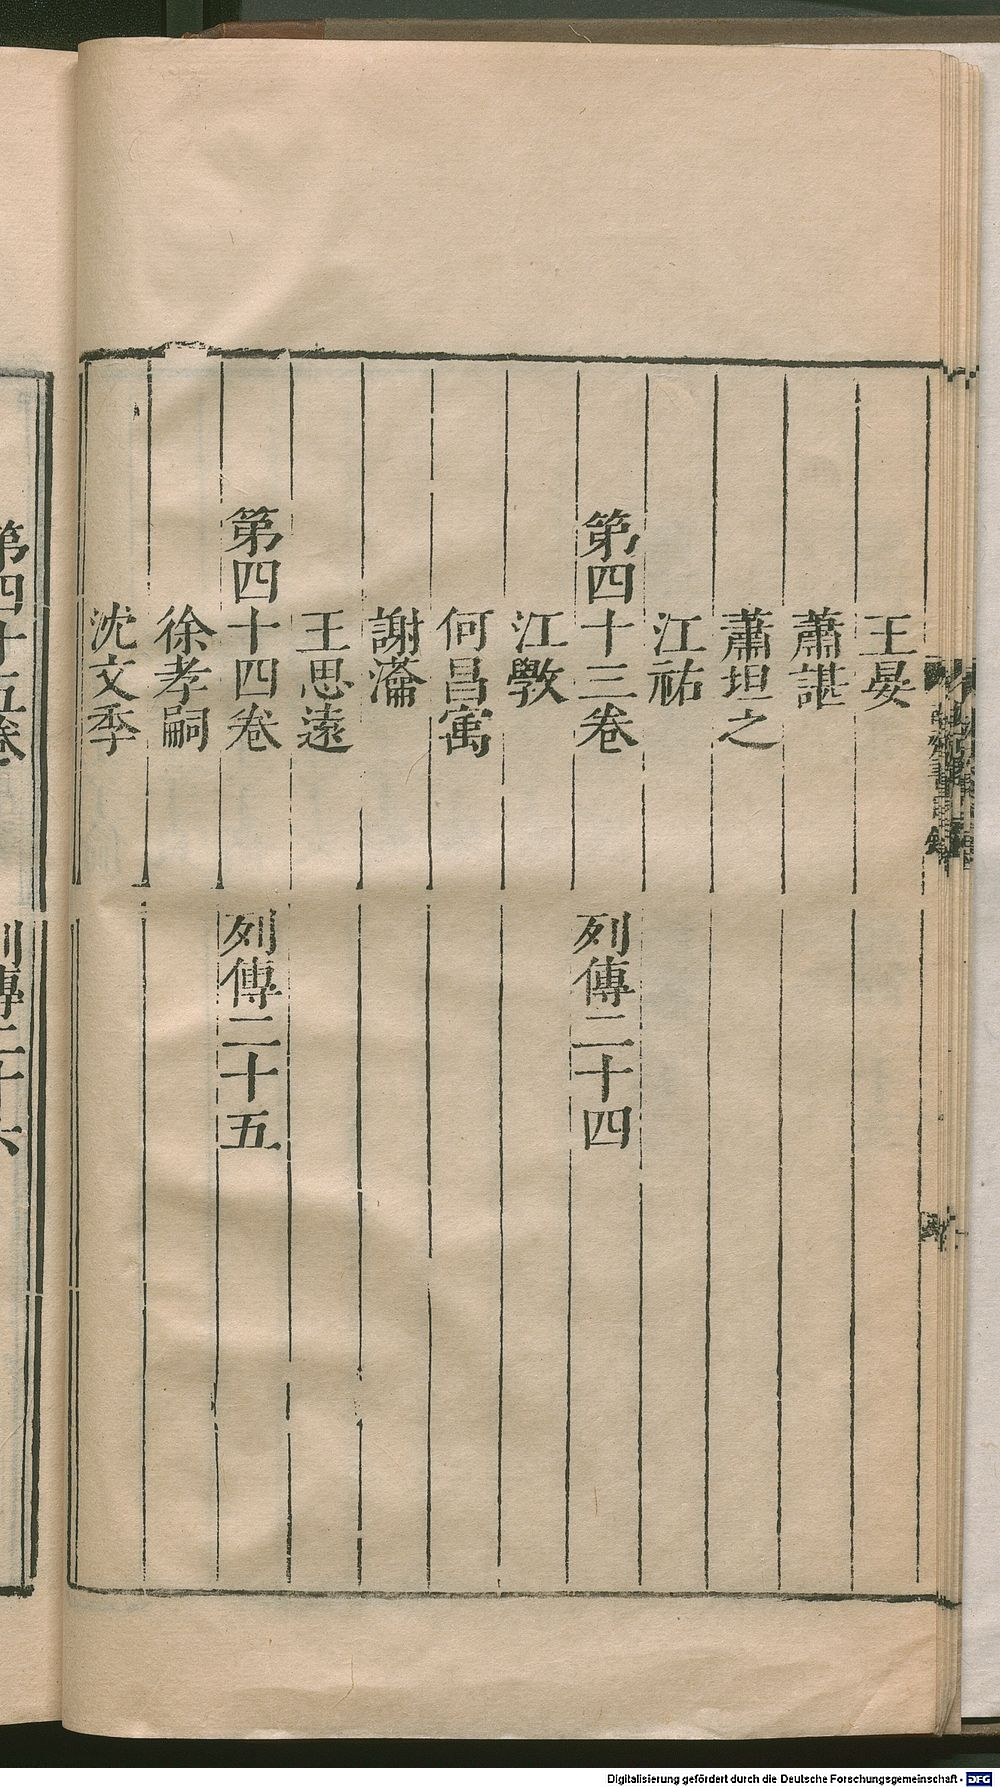 王晏
蕭諶
蕭坦之
江祏
第四十三卷 列傳二十四
江斆
何昌寓
謝瀹
王思遠
第四十四卷 列傳二十五
徐孝嗣
沈文季
第四十五卷 列傳二十六
Digitalisierung gefördert durch die Deutsche Forschungsgemeinschaft - DFG